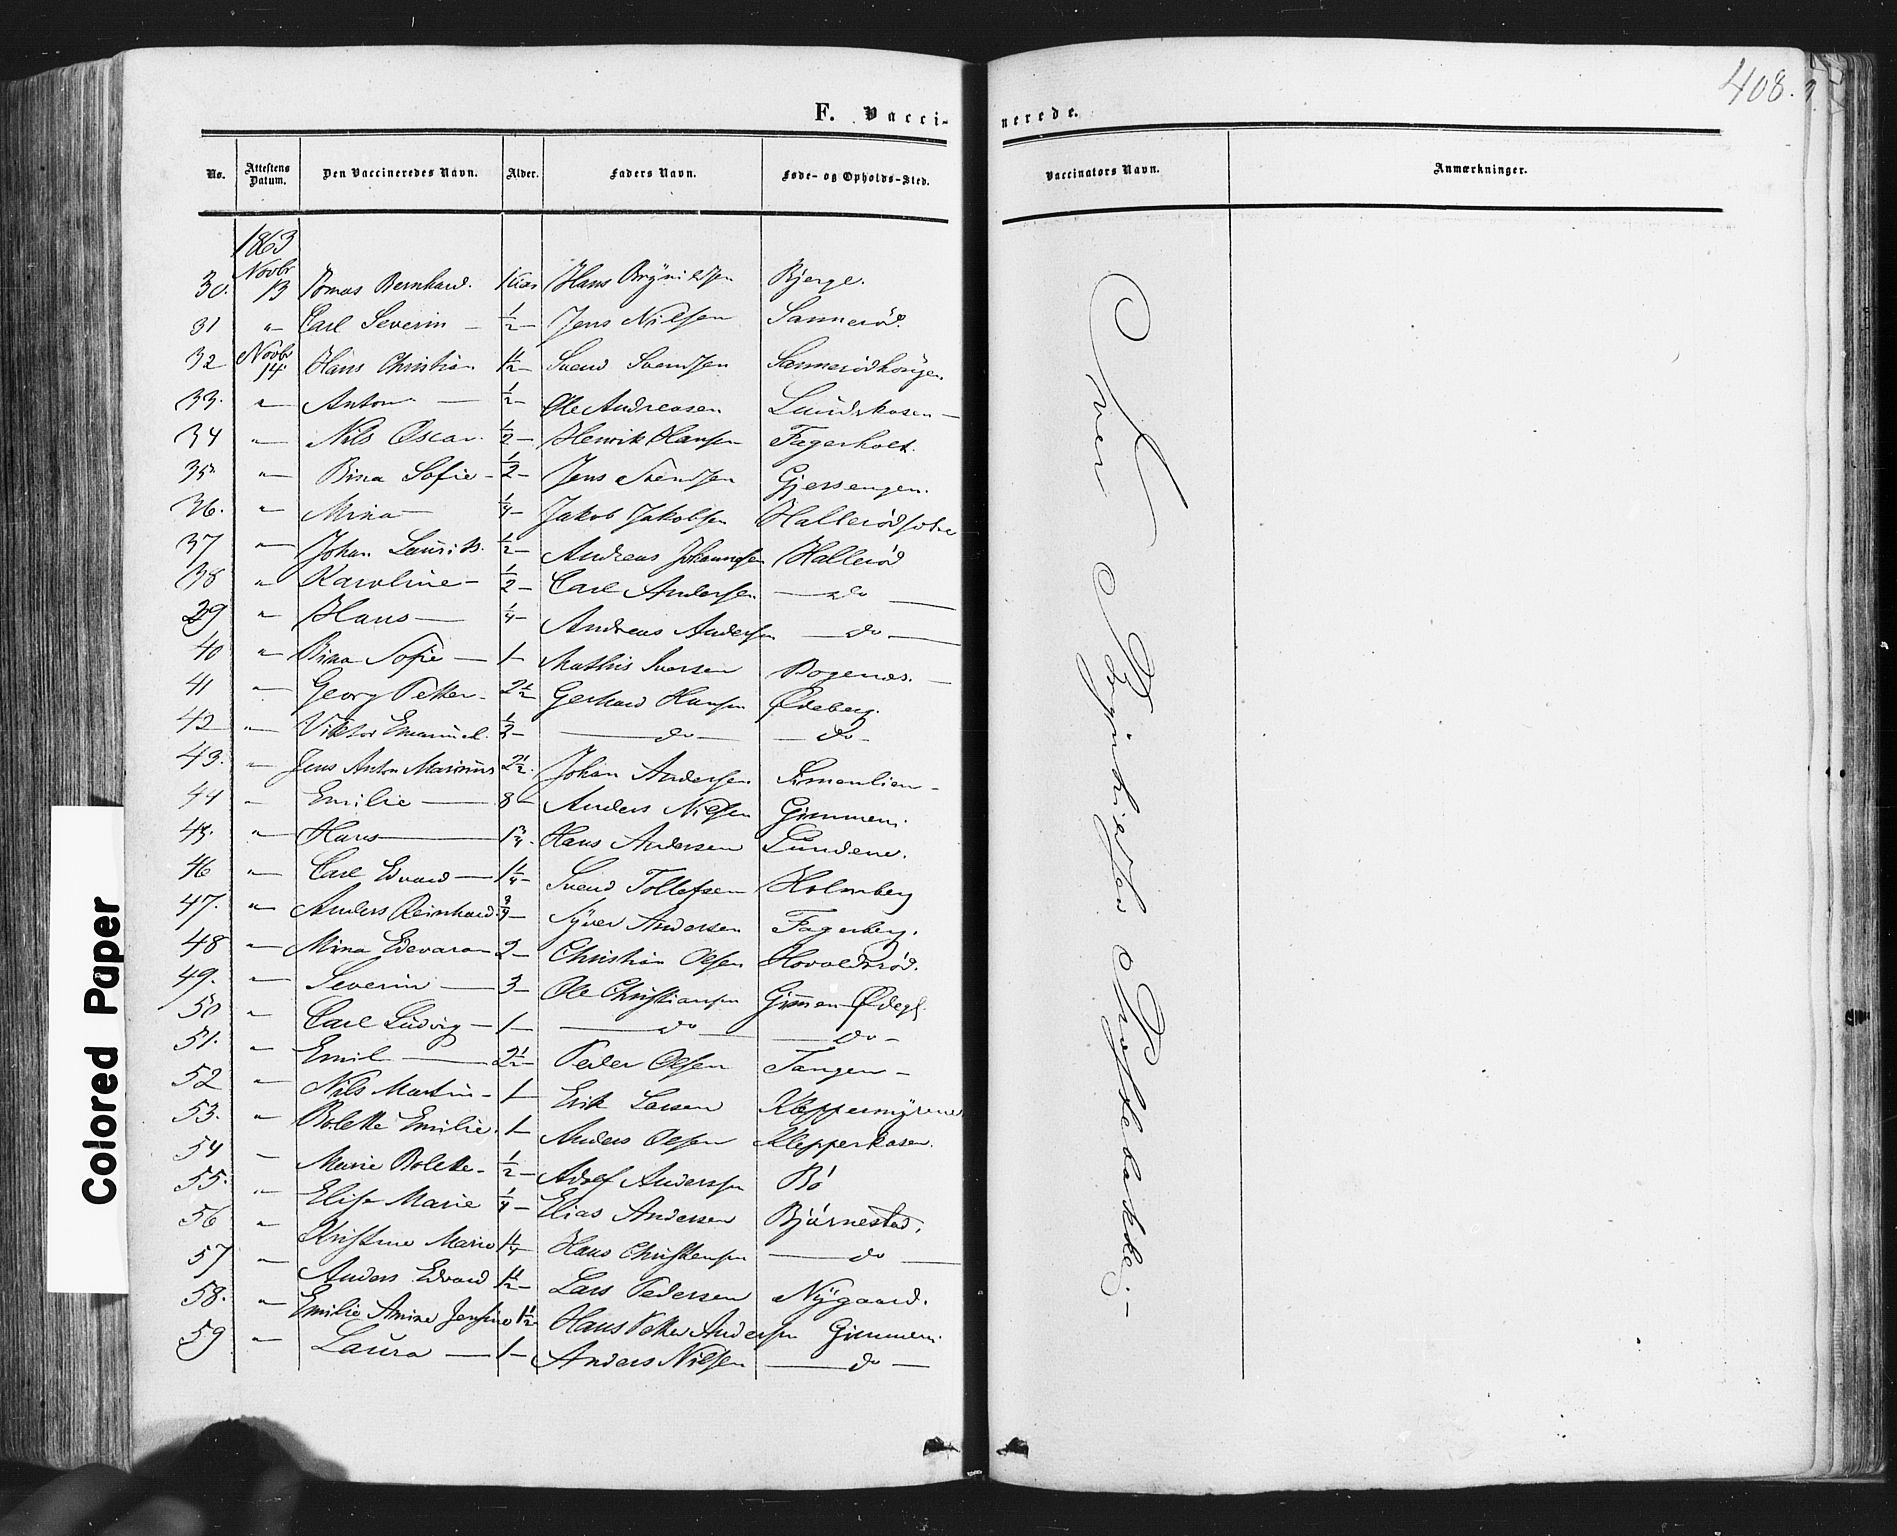 408.
F. Vaccinerede.
No. Attestens Datum. Den Vaccineredes Navn. Alder. Faders Navn. Føde- og Opholds-Sted. Vaccinators Navn. Anmærkninger.
1863
Novbr
30. 13 Bernhard. Hans Bryni Bjerge.
31 " Carl Severin — ½ — Jens Nilsen Sannerød.
32 Novbr 14 Hans Christian 1½ — Svend Svendsen
33. " Anton — ½ — Ole Andreasen Lundekasen —
34 " Nils Oscar. ½ — Henrik Hansen Fagerholt.
35 " Bina Sofie — ½ — Jens Svendsen Gjersengen.
36. " Mina — ¼ — Jakob Jakobsen
37 " Johan Laurits. ½ — Andreas Johannesen Hallerød
38 " Karoline — ½ — Carl Andersen — do —
39 " Hans — ¼ — Andreas Andersen — do —
40 " Bina Sofie — 1 — Mathis Iversen Bogenæs. —
41 " Georg Petter — 2½ — Gerhard Hansen Ødeberg.
42 " Viktor Emanuel. ½ — — do — — do —
43. " Jens Anton Marinus 2½. Johan Andersen Simenlien —
44 " Emilie — 8 — Anders Nilsen Gimmen.
45. " Hans — 1¾. Hans Andersen Lundene.
46 " Carl Edvard — 1¼ — Svend Tollefsen Holmberg
47. " Anders Reinhard. ¾ — Syver Andersen Fagerberg.
48 " Mina Edevara — 2 — Christian Olsen Hovoldsrød.
49. " Severin — 3 — Ole Christiansen Gimmen Ødegd.
50 " Carl Ludvig — 1 — — do — — do —
51. " Emil — 2½ — Peder Olsen Tangen —
52 " Nils Martin — 1 — Erik Larsen Kleppermyrene
53. " Bolette Emilie. 1 — Anders Olsen Klepperkasen.
54 " Marie Bolette — ½ — Adolf Andersen Bö
55. " Elise Marie ¼ — Elias Andersen Björnestad.
56 " Kristine Marie 1¼ — Hans Christensen — do —
57 " Anders Edvard 1½ — Lars Pedersen Nygaard.
58. " Emilie Amine Jensine 1½ — Hans Petter Andersen Gimmen.
59 " Laura — 1 — Anders Nilsen — do —
Colored Paper